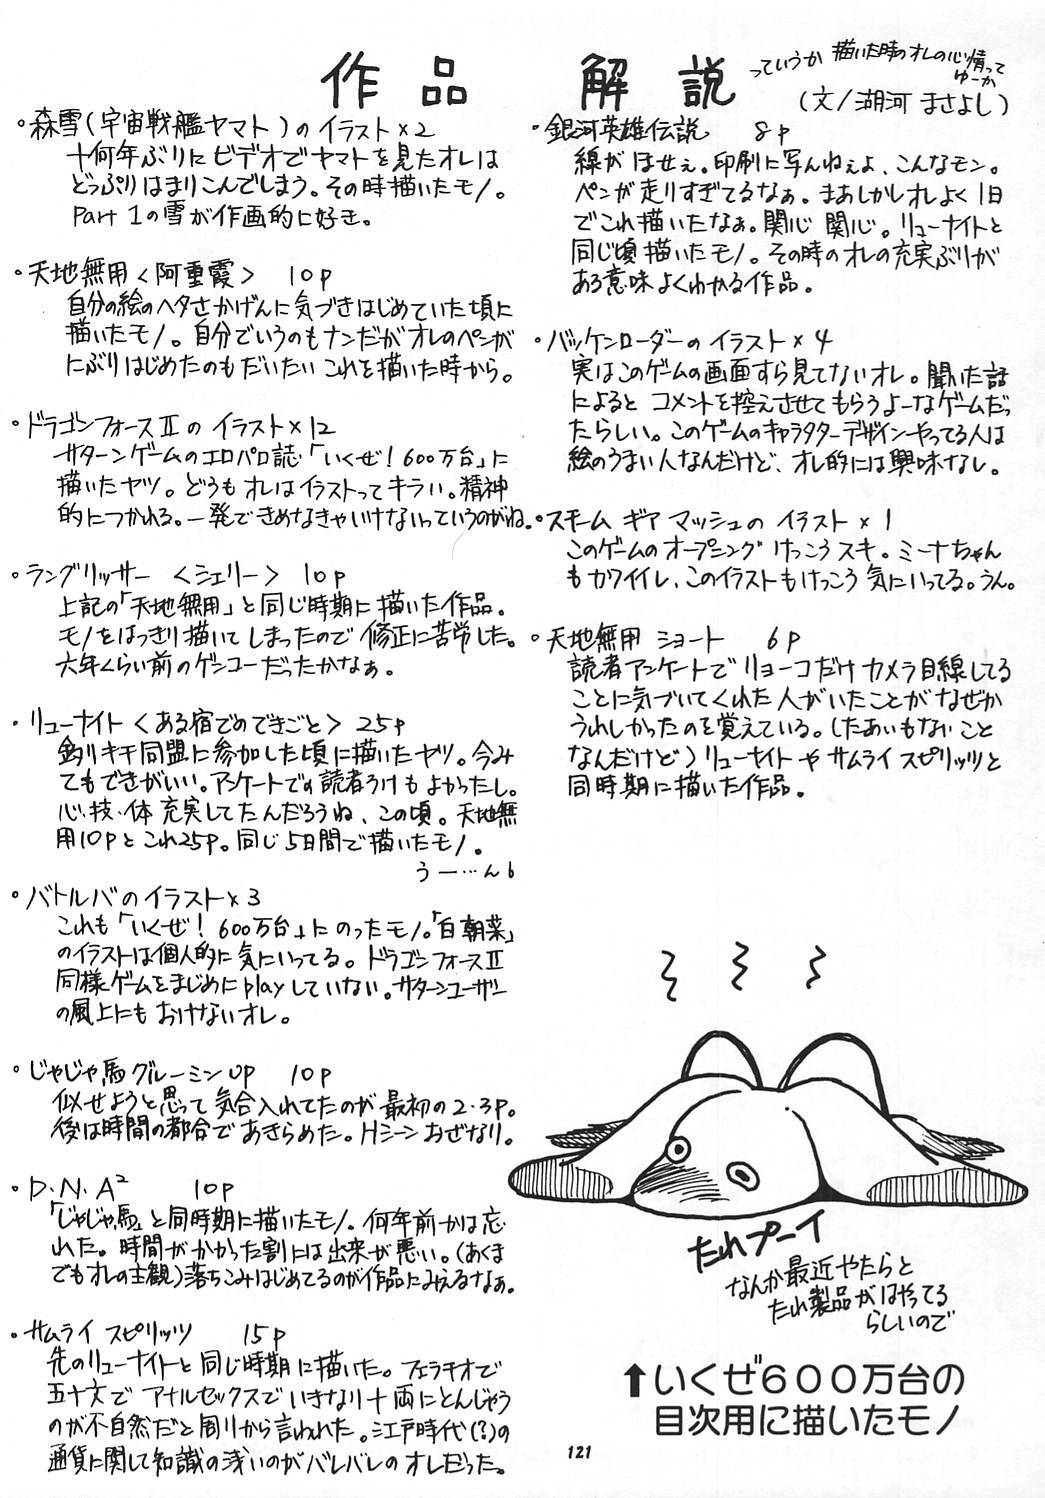 作品 解説
っていうか 描いた時のオレの心情って
ゆーか
(文/湖河 まさよし)
・森雪(宇宙戦艦ヤマト)のイラスト×2
十何年ぶりにビデオでヤマトを見たオレは
どっぷりはまりこんでしまう。その時描いたモノ。
Part 1の雪が作画的に好き。
・天地無用<阿重霞> 10p
自分の絵のヘタさかげんに気づきはじめていた頃に
描いたモノ。自分でいうのもナンだがオレのペンが
にぶりはじめたのもだいたいこれを描いた時から。
・ドラゴンフォースⅡの イラスト×12
サターンゲームのエロパロ誌・「いくぜ!600万台」に
描いたヤツ。どうもオレはイラストってキラい。精神
的につかれる。一発できめなきゃいけないっていうのがね。
・ラングリッサー <シェリー> 10p
上記の「天地無用」と同じ時期に描いた作品。
モノをはっきり描いてしまったので修正に苦労した。
六年くらい前のゲンコーだったかなぁ。
・リューナイト<ある宿でのできごと> 25p
釣りキチ同盟に参加した頃に描いたヤツ。今み
てもできがいい。アンケートでの読者うけもよかったし。
心・技・体 充実してたんだろうね、この頃。天地無
用10pとこれ25p。同じ5日間で描いたモノ。
うー…ん6
・バトルバのイラスト×3
これも「いくぜ!600万台」にのったモノ。「白朝菜」
のイラストは個人的に気にいってる。ドラゴンフォースⅡ
同様ゲームをまじめにplayしていない。サターンユーザー
の風上にもおけないオレ。
・じゃじゃ馬グルーミンUP 10p
似せようと思って気合入れてたのが最初の2・3p。
後は時間の都合であきらめた。Hシーンおざなり。
・D・N・A² 10p
「じゃじゃ馬」と同時期に描いたモノ。何年前かは忘
れた。時間がかかった割には出来が悪い。(あくま
でもオレの主観)落ちこみはじめてるのが作品にみえるなぁ。
・サムライ スピリッツ 15p
先のリューナイトと同じ時期に描いた。フェラチオで
五十文でアナルセックスでいきなり十両にとんじゃう
のが不自然だと周りから言われた。江戸時代(?)の
通貨に関して知識の浅いのがバレバレのオレだった。
・銀河英雄伝説 8p
線がほせぇ。印刷に写んねぇよ、こんなモン。
ペンが走りすぎてるなぁ。まあしかしオレよく1日
でこれ描いたなぁ。関心 関心。リューナイトと
同じ頃描いたモノ。その時のオレの充実ぶりが
ある意味よくわかる作品。
・バッケンローダーのイラスト×4
実はこのゲームの画面すら見てないオレ。聞いた話
によると コメントを控えさせてもらうよーなゲームだっ
たらしい。このゲームのキャラクターデザインやってる人は
絵のうまい人なんだけど、オレ的には興味なし。
・スチーム ギア マッシュの イラスト×1
このゲームのオープニング けっこうスキ。ミーナちゃん
もカワイイし、このイラストもけっこう気にいってる。うん。
・天地無用 ショート 6p
読者アンケートでリョーコだけカメラ目線してる
ことに気づいてくれた人がいたことがなぜか
うれしかったのを覚えている。(たあいもないこと
なんだけど)リューナイトやサムライスピリッツと
同時期に描いた作品。
たれプーイ
なんか最近やたらと
たれ製品がはやってる
らしいので
↑いくぜ600万台の
目次用に描いたモノ
121